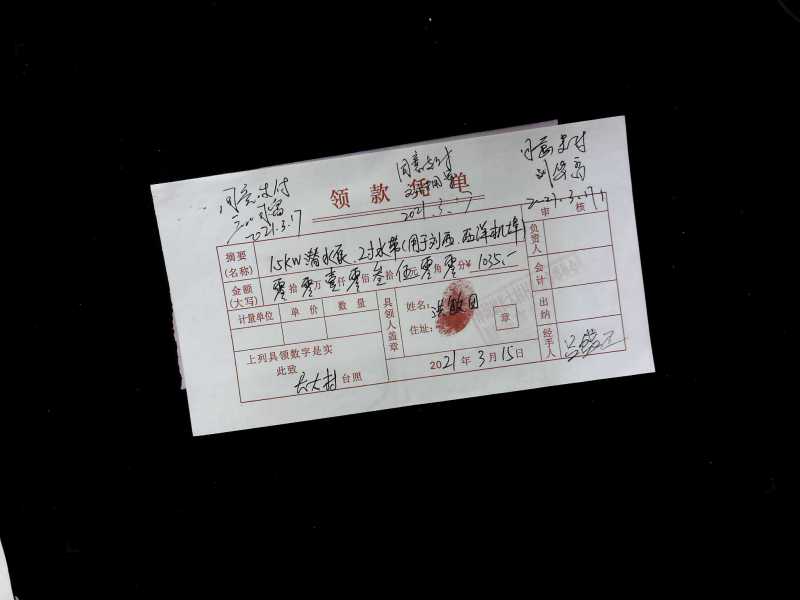 同意支付
2021.3.17
同意支付
2021.3.17
同意支付
2021.3.17
领款凭单
审核
摘要(名称) 1.5KW潜水泵、2寸水带(用于刘西、西洋机埠)
金额(大写) 零拾零万壹仟零佰叁拾伍元零角零分¥ 1035.-
计量单位 单价 数量
具领人盖章
姓名: 洪敏田
住址:
章
负责人
会计
出纳
经手人
上列具领数字是实
此致
长大村台照
2021年3月15日